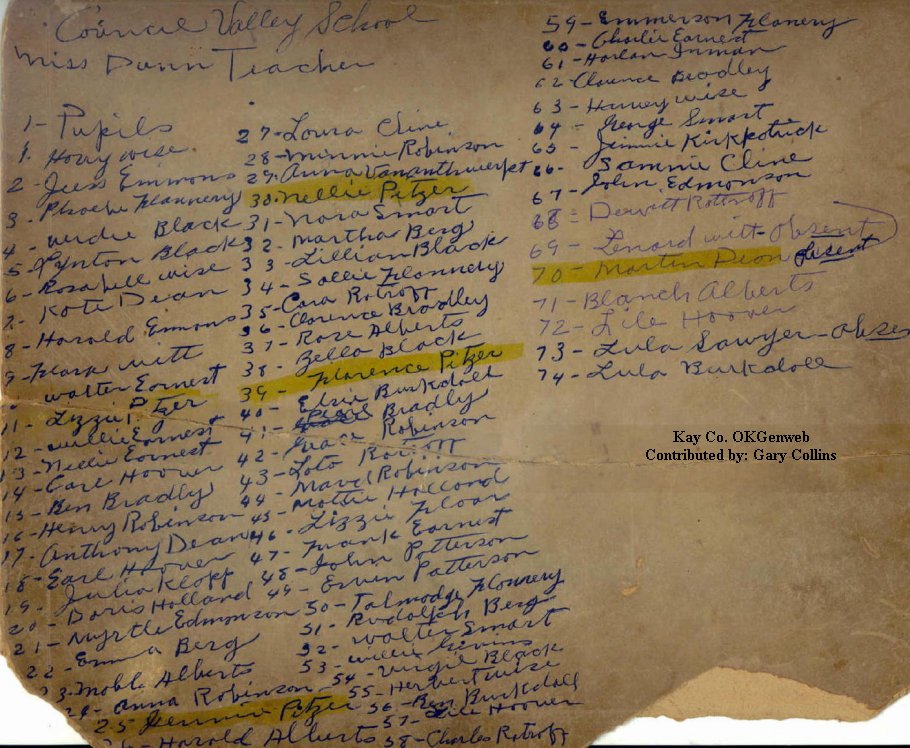 Council Valley School
Miss Dunn Teacher
1- Pupils
1. Harry wise.
2- Jess Emmons
3- Phoebe Flannery
4- Verdie Black
5- Lynton Black
6- Rosa bell wise
7- Kate Dean
8- Harold Emmons
9- Flara witt
walter Earnest
11- Lizzie Pitzer
12- willie Earnest
13- Nellie Earnest
14- Carl Hoover
15- Ben Bradly
16- Henry Robinson
17- Anthony Dean
18- Earl Hoover
19- Julia Klopf
20- Doris Holland
21- Myrtle Edmonson
22- Emma Berg
23. Noble Alberts
24- Anna Robinson
25- Jennie Pitzer
26- Harold Alberts
27- Laura Cline
28- Minnie Robinson
29. Anna Vananthwerpt
30. Nellie Pitzer
31- Nora Smart
32- Martha Berg
33- Lillian Black
34- Sallie Flannery
35- Cara Rotroff
36- Clarence Bradley
37- Rose Alberts
38- Zella Black
39- Florence Pitzer
40- Elsie Burkdoll
41- Pearl Bradly
42- Grace Robinson
43- Loto Rotroff
44- Mavel Robinson
45- Mattie Holland
46- Lizzie Floar
47- Frank Earnest
48- John Patterson
49- Ervin Patterson
50- Talmadge Flannery
51- Rudolph Berg
52- walter Smart
53- willie Givins
54- Virgil Black
55- Herbert wise
56- Roy Burkdoll
57- Lile Hoover
58- Charles Rotroff
59- Emmerson Flanery
60- Charlie Earnest
61- Harlan Inman
62- Clarence Bradley
63- Harvey wise
64- George Smart
65- Jimmie Kirkpatrick
66- Sammie Cline
67- John Edmonson
68- Dewitt Rottroff
69- Lenard witt- Absent
70- Martin Dean Absent
71- Blanch Alberts
72- Lile Hoover
73- Lula Sawyer- abse
74- Lula Burkdoll
Kay Co. OKGenweb
Contributed by: Gary Collins